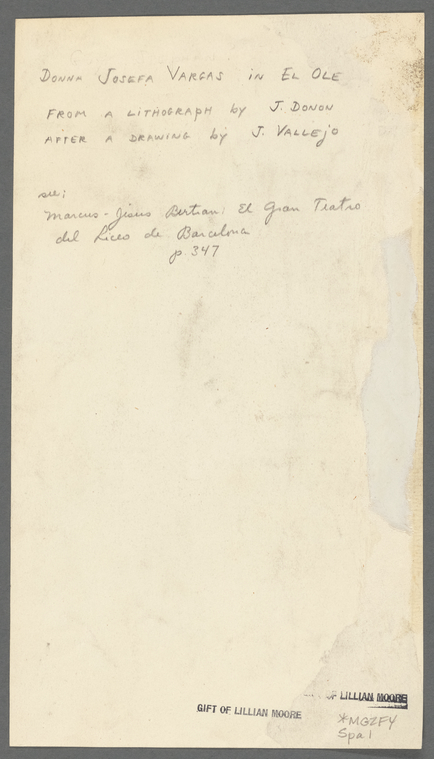 DONNA JOSEFA VARGAS IN EL OLE
FROM A LITHOGRAPH by J. DONON
AFTER A DRAWING by J. VALLEJO
see:
Marcus-Jesus Bertran: El Gran Teatro
del Liceo de Barcelona
p 347
OF LILLIAN MOORE
GIFT OF LILLIAN MOORE
*MGZFY
Spa 1